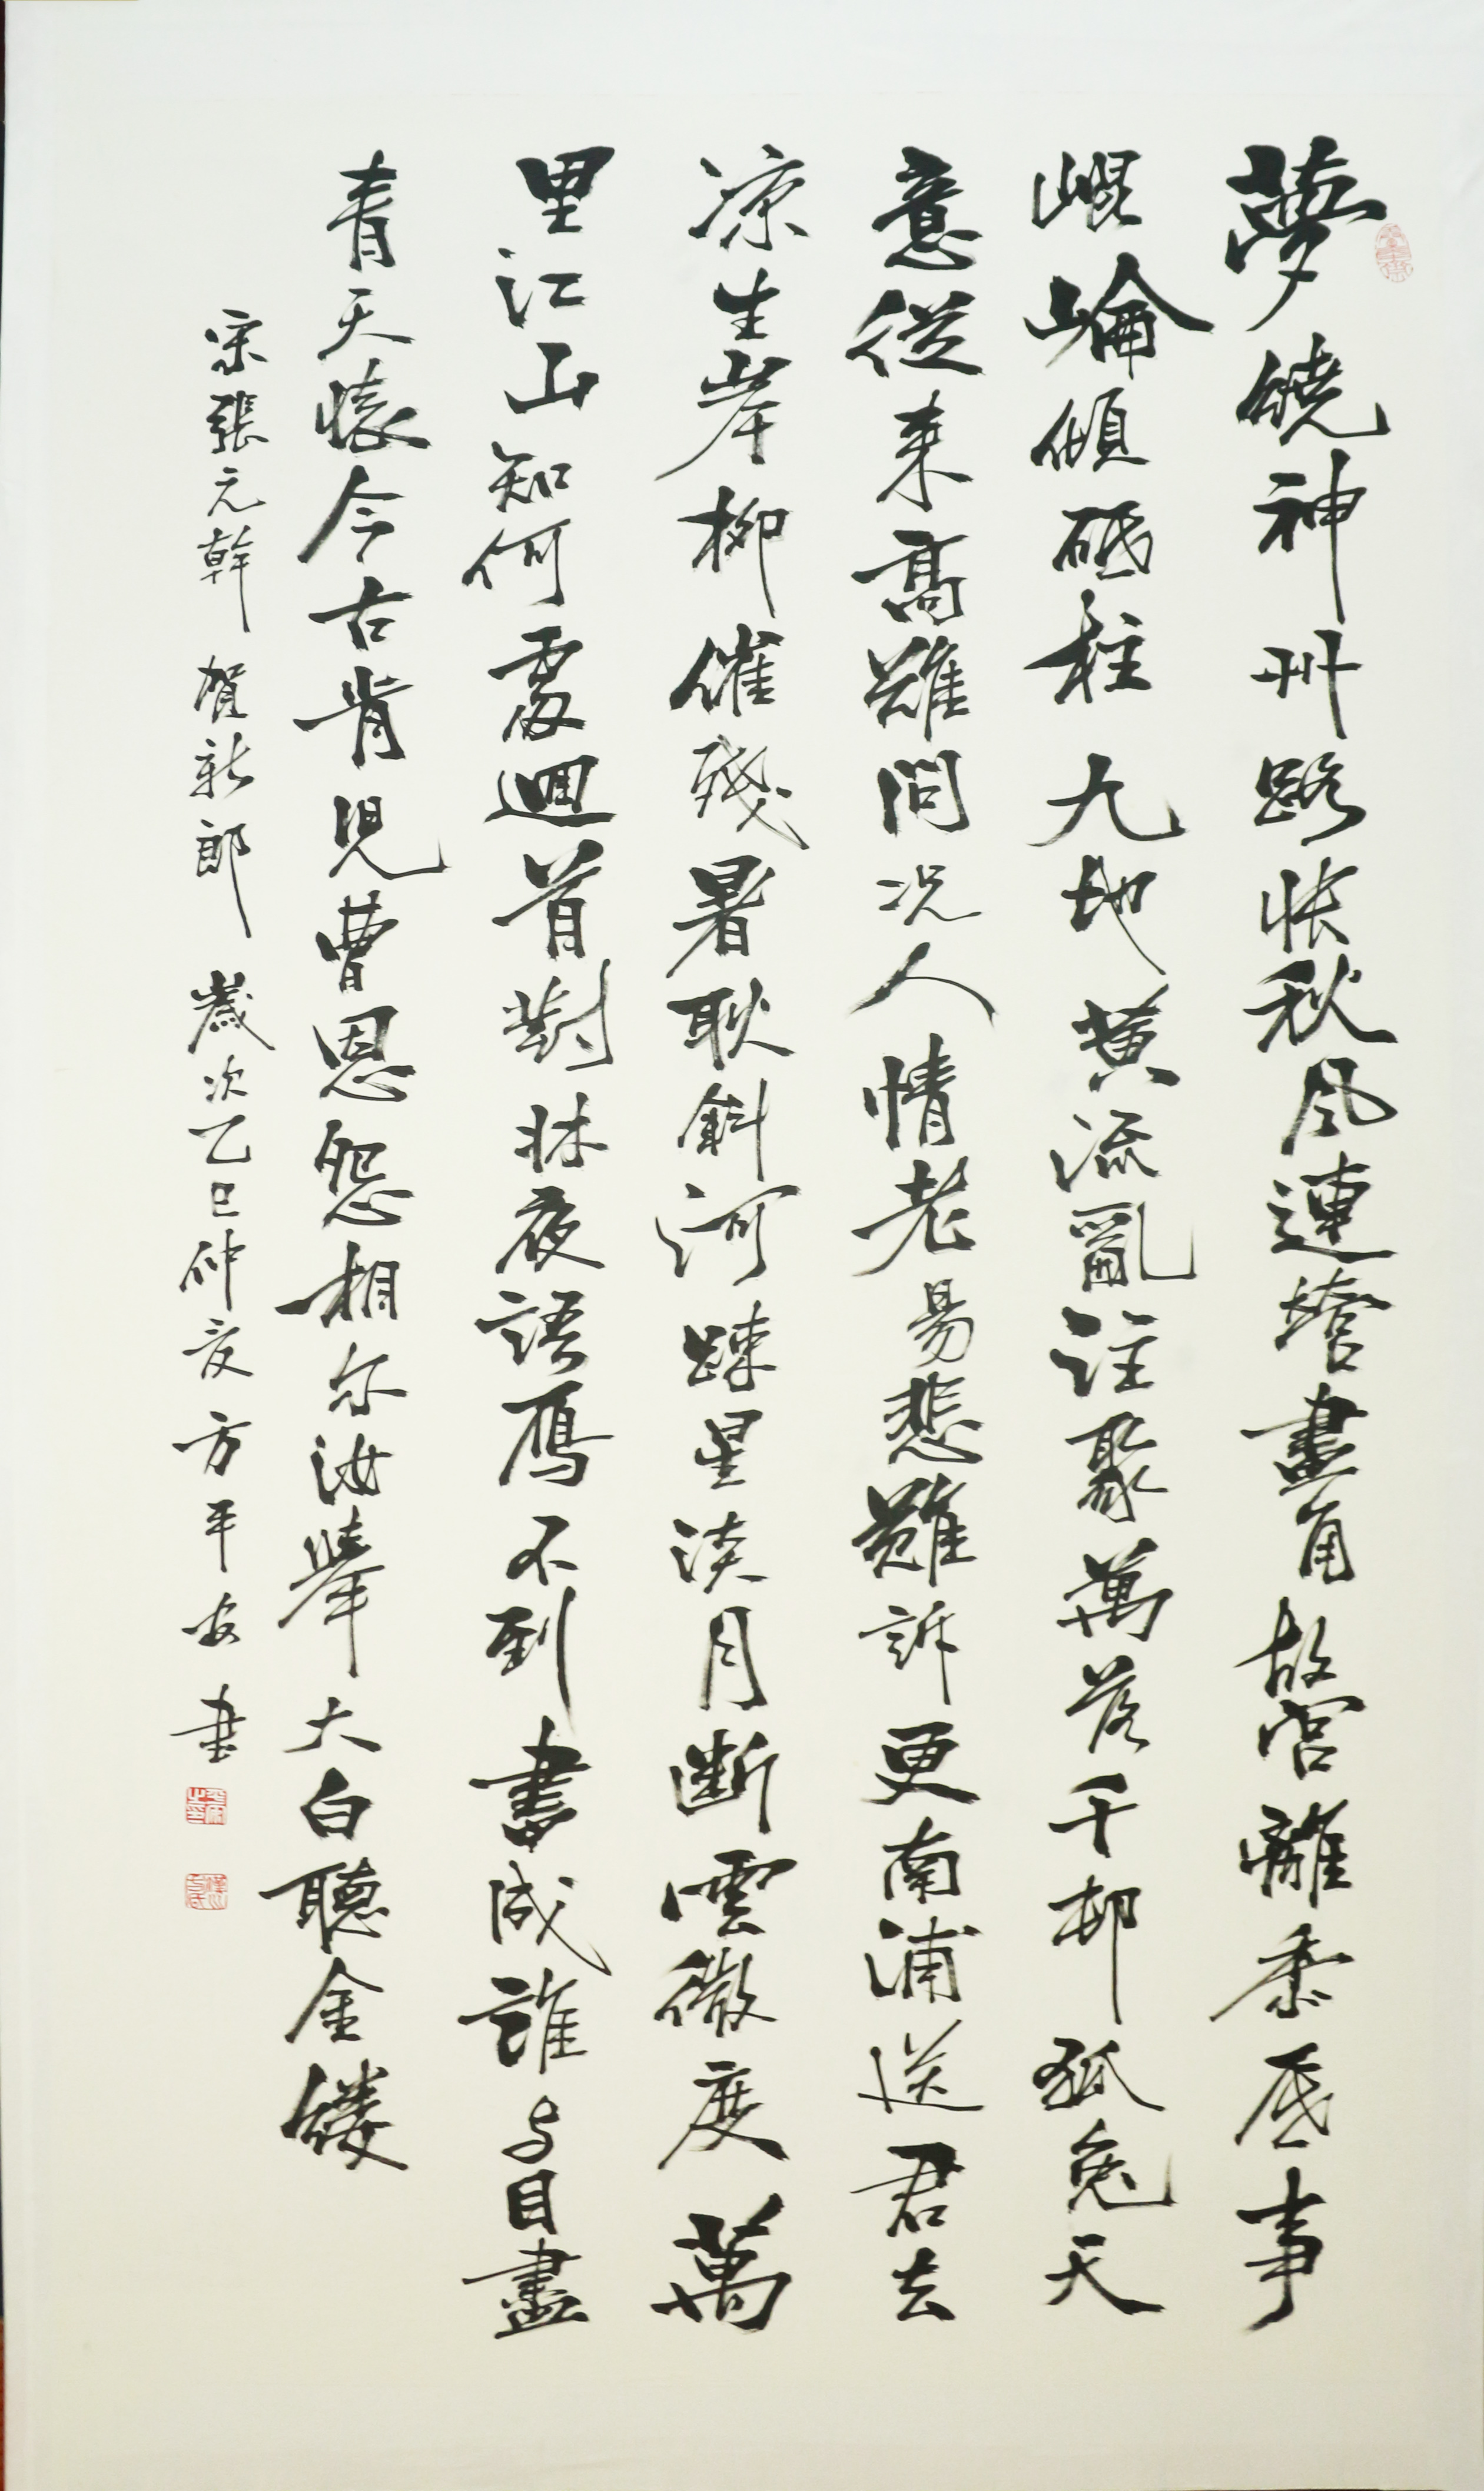 夢繞神州路悵秋風連營畫角故宮離黍底事
崐崘傾砥柱九地黄流亂註聚萬落千邨狐兔天
意從来高難問况人情老易悲難訴更南浦送君去
凉生岸柳催殘暑耿斜河疎星淡月斷雲微度萬
里江山知何處迴首對牀夜語鴈不到書成誰与目盡
青天懷今古肯兒曹恩怨相尔汝舉大白聽金縷
宋張元幹 賀新郎 歲次乙巳仲夏方平安書